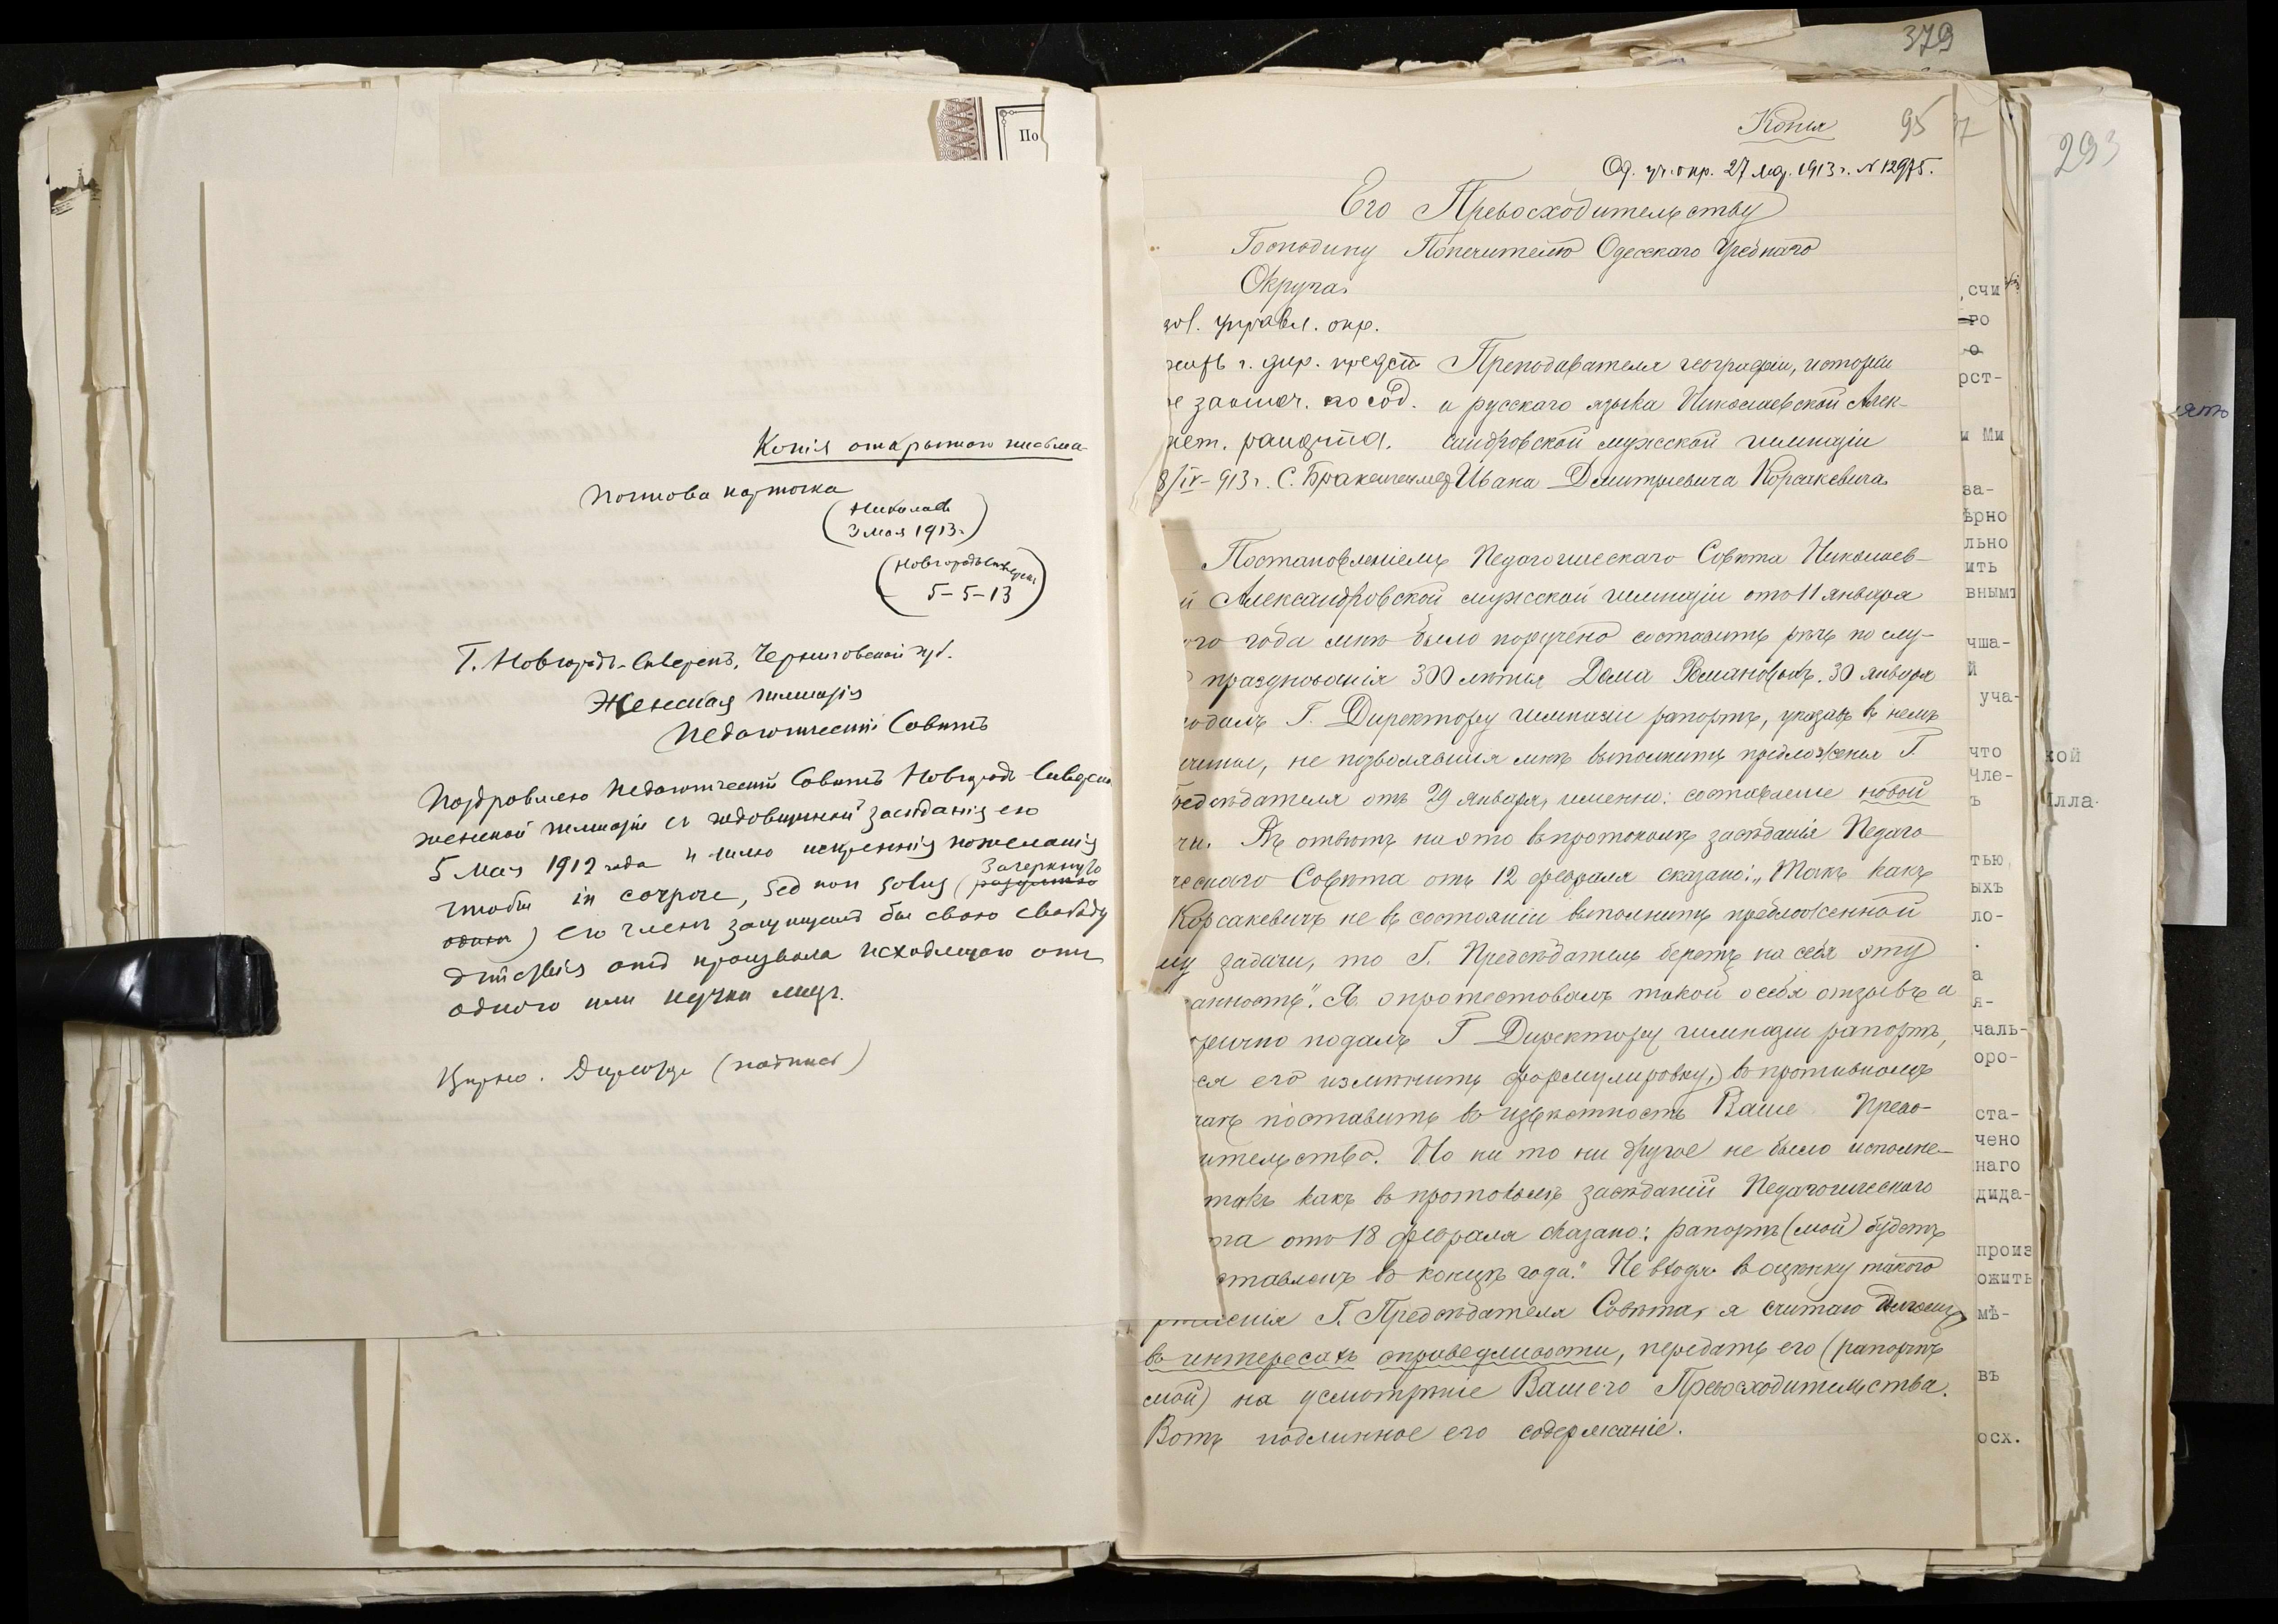 По
Копія открытаго письма
Почтова карточка
(Николаев
3 мая 1913 г.)
(Новгородъсѣверск
5-5-13)
Г. Новгородъ-Сѣверскъ, Черниговской губ.
Женская гимназія
Педагогическій Совѣтъ
Поздравляю Педагогическій Совѣтъ Новгородъ-Сѣверск
женской гимназіи съ годовщиной засѣданія его
5 мая 1912 года и шлю искреннія пожеланія
Зачеркнуто
чтобы in corpore, sed non solus (
одинъ) его членъ защищалъ бы свою свободу
дѣйствія отъ произвола исходящаго отъ
одного или кучки лицъ.
(подпись)
379
Копія
95
Од. уч. окр. 27 1913 г. № 12975.
Его Превосходительству
Господину Попечителю Одесскаго Учебнаго
Округа.
управл. окр.
г. дир. предст Преподавателя географіи, исторіи
и русскаго языка Николаевской Алек-
сандровской мужской гимназіи
8/IV-913 г. С. Ивана Дмитріевича Корсакевича
Постановленіемъ Педагогическаго Совѣта Николаев-
й Александровской мужской гимназіи отъ 11 января
ого года мнѣ было поручено составить рѣчь по слу-
празднованія 300 лѣтія Дома Романовыхъ. 30 января
одалъ Г. Директору гимназіи рапортъ, указавъ въ немъ
ичины, не позволявшія мнѣ выполнить предложенія Г.
редсѣдателя отъ 29 января, именно: составленіе новой
чи. Въ отвѣтъ на это въ протоколѣ засѣданія Педаго-
ческаго Совѣта отъ 12 февраля сказано: „Такъ какъ
Корсакевичъ не въ состояніи выполнить предложенной
му задачи, то Г. Предсѣдатель беретъ на себя эту
анность". Я опротестовалъ такой о себѣ отзывъ и
орично подалъ Г Директору гимназіи рапортъ,
ся его измѣнить формулировку, въ противномъ
чаѣ поставить въ извѣстность Ваше Прево-
ительство. Но ни то ни другое не было исполне-
такъ какъ въ протоколѣ засѣданій Педагогическаго
та отъ 18 февраля сказано: рапортъ (мой) будетъ
ставленъ въ концѣ года." Не входя въ оцѣнку такого
рѣшенія Г. Предсѣдателя Совѣта, я считаю долгомъ,
въ интересахъ справедливости, передать его (рапортъ
мой) на усмотрѣніе Вашего Превосходительства.
Вотъ подлинное его содержаніе.
,счи
го
о
рст-
и Ми
за-
ѣрно
льно
ить
внымъ
чша-
й
уча-
что
чле-
ъ
тью,
ыхъ
ло-
а
я-
чаль-
оро-
ста-
чено
наго
дида-
произ
ожить
мѣ-
въ
осх.
293
кой
лла-